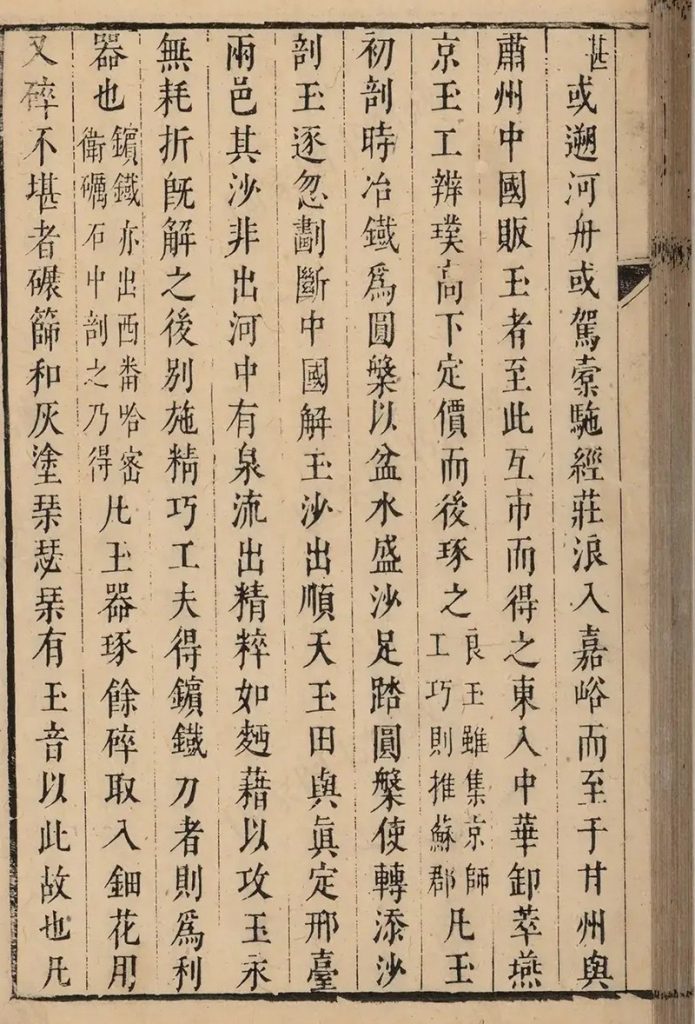 甚或遡河舟或駕橐駞經莊浪入嘉峪而至于甘州與
肅州中國販玉者至此互市而得之東入中華卸萃燕
京玉工辨璞高下定價而後琢之良玉雖集京師工巧則推蘇郡凡玉
初剖時冶鐵爲圓槃以盆水盛沙足踏圓槃使轉添沙
剖玉逐忽劃斷中國解玉沙出順天玉田與眞定邢臺
兩邑其沙非出河中有泉流出精粹如麪藉以攻玉永
無耗折旣解之後別施精巧工夫得鑌鐵刀者則爲利
器也鑌鐵亦出西番哈密衛礪石中剖之乃得凡玉器琢餘碎取入鈿花用
又碎不堪者碾篩和灰塗琴瑟琴有玉音以此故也凡